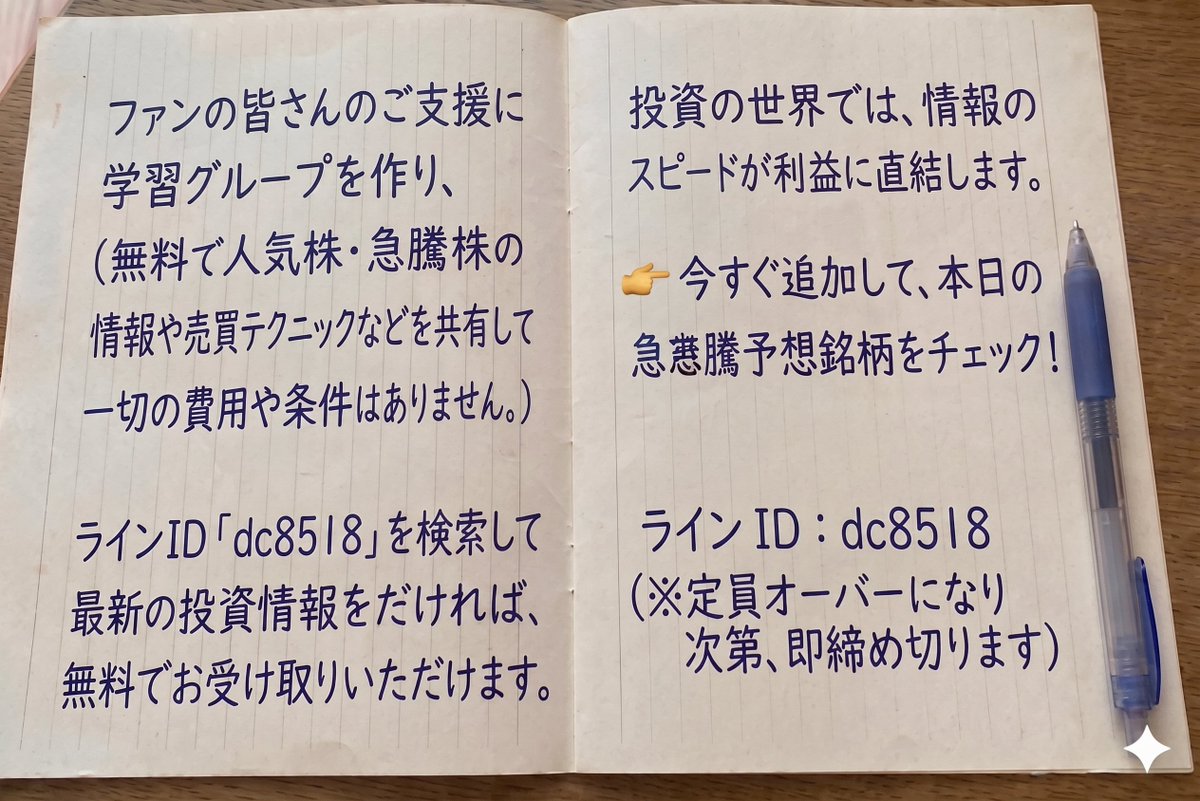 ファンの皆さんのご支援に
学習グループを作り、
(無料で人気株・急騰株の
情報や売買テクニックなどを共有して
一切の費用や条件はありません。)
ラインID「dc8518」を検索して
最新の投資情報をだければ、
無料でお受け取りいただけます。
投資の世界では、情報の
スピードが利益に直結します。
👉今すぐ追加して、本日の
急騰予想銘柄をチェック!
ライン ID:dc8518
(※定員オーバーになり
次第、即締め切ります)